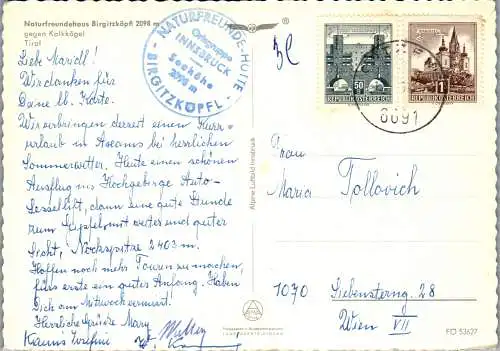 Naturfreundehaus Birgitzköpfl 2098 m
gegen Kalkkögel
Tirol
NATURFREUNDE-HÜTTE
Ortsgruppe
INNSBRUCK
Seehöhe
2098 m
BIRGITZKÖPFL
Liebe Mariedl!
Wir danken für
Deine lb. Karte.
Wir verbringen derzeit einen Kurz-
urlaub in Axams bei herrlichen
Sommerwetter. Heute einen schönen
Ausflug ins Hochgebirge Auto-
Sessellift, dann eine gute Stunde
zum Gipfel mit weiter und guter
Sicht, Nockspitze 2403 m.
Hoffen noch mehr Touren zu machen,
fürs erste ein guter Anfang. Haben
Dich am Mittwoch vermisst!
Herrliche Grüße Mary
Alpine Luftbild Innsbruck
50
REPUBLIK ÖSTERREICH
1
REPUBLIK ÖSTERREICH
6091
Frau
Maria Tollovich
1070 Siebensterng. 28
Wien VII
FO 53627